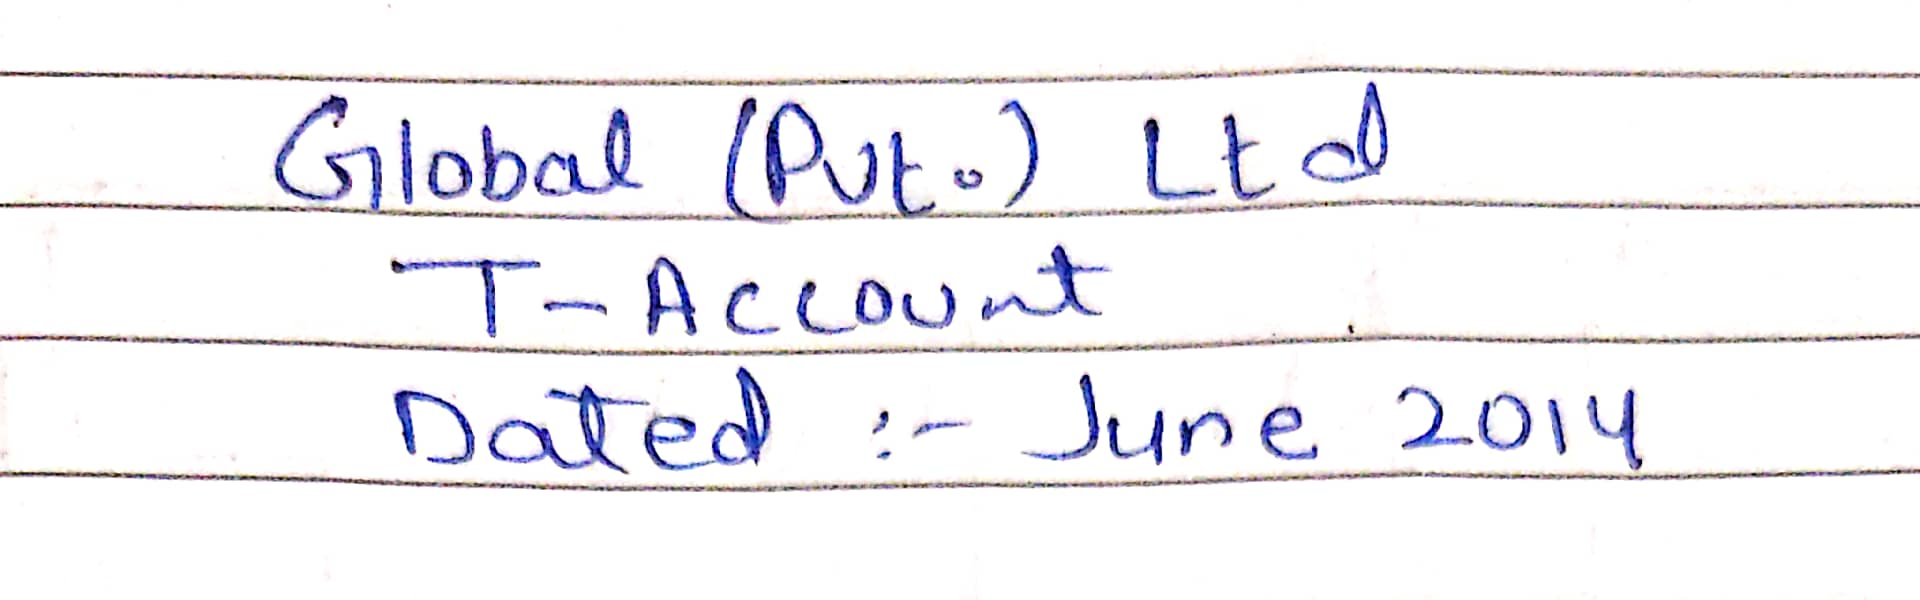 Global (Pvt.) Ltd
T-Account
Dated :- June 2014